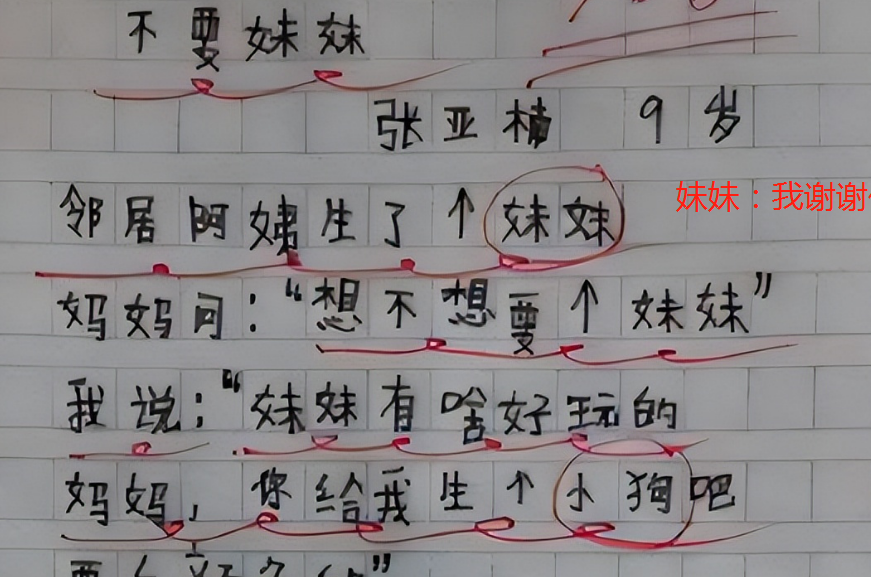 不要妹妹
张亚楠 9岁
邻居阿姨生了个妹妹
妹妹：我谢谢
妈妈问：“想不想要个妹妹”
我说：“妹妹有啥好玩的
妈妈，你给我生个小狗吧